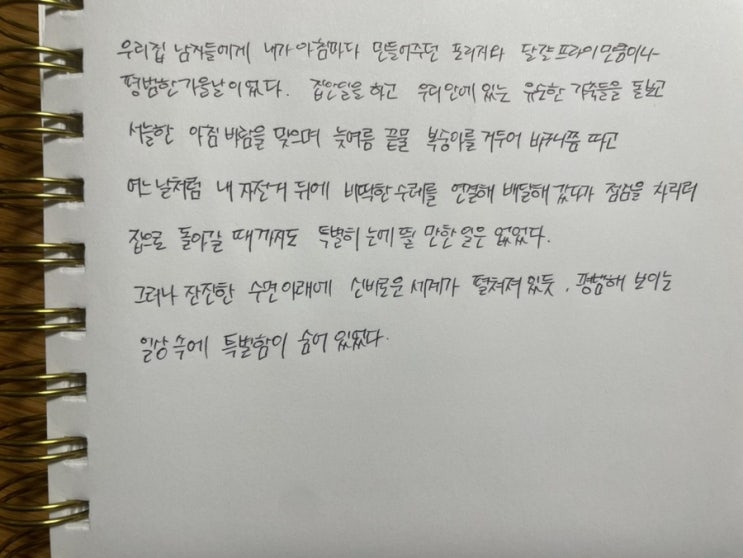 우리집 남자들에게 내가 아침마다 만들어주던 포리지와 달걀프라이만큼이나
평범한 가을날이었다. 집안일을 하고 우리 안에 있는 유순한 가축들을 돌보고
서늘한 아침 바람을 맞으며 늦여름 끝물 복숭아를 거두어 바구니쯤 따고
여느 날처럼 내 자전거 뒤에 삐딱한 수레를 연결해 배달해 갔다가 점심을 차리러
집으로 돌아갈 때까지도 특별히 눈에 띌 만한 일은 없었다.
그러나 잔잔한 수면 아래에 신비로운 세계가 펼쳐져 있듯, 평범해 보이는
일상 속에 특별함이 숨어 있었다.